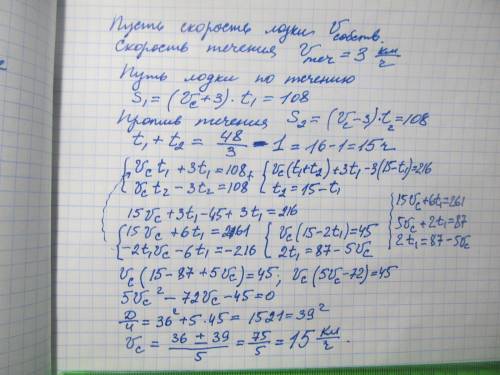 Пусть скорость лодки Vсобств.
Скорость течения Vтеч = 3 км/ч
Путь лодки по течению
S₁ = (Vc+3)·t₁ = 108
Против течения S₂ = (Vc-3)·t₂ = 108
t₁ + t₂ = 48/3 - 1 = 16-1 = 15 ч
{ Vc t₁ + 3t₁ = 108 + { Vc(t₁+t₂)+3t₁-3(15-t₁)=216
Vc t₂ - 3t₂ = 108 t₂ = 15-t₁
15Vc + 3t₁ - 45 + 3t₁ = 216
{ 15Vc + 6t₁ = 261 { Vc(15-2t₁)=45
-2t₁Vc - 6t₁ = -216 2t₁ = 87-5Vc
{ 15Vc+6t₁=261
5Vc+2t₁=87
2t₁=87-5Vc
Vc(15-87+5Vc)=45; Vc(5Vc-72)=45
5Vc² - 72Vc - 45 = 0
D/4 = 36² + 5·45 = 1521 = 39²
Vc = (36 ± 39)/5 = 75/5 = 15 км/ч.